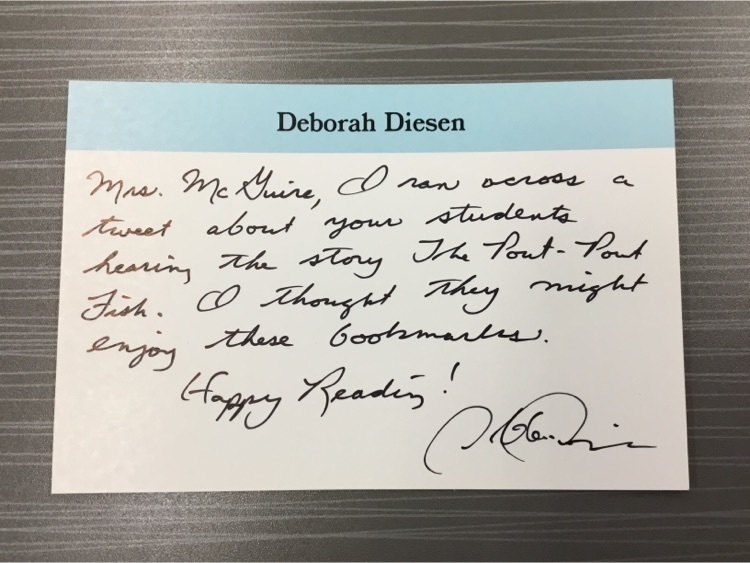 Deborah Diesen
Mrs. McGuire, I ran across a
tweet about your students
hearing the story The Pout-Pout
Fish. I thought they might
enjoy these bookmarks.
Happy Reading!